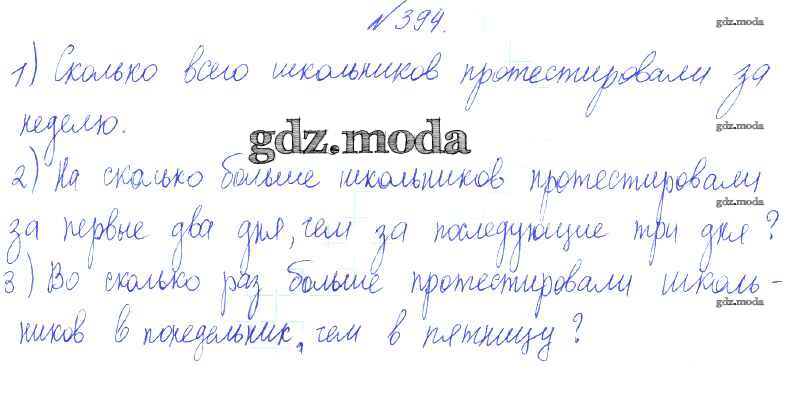 №394.
gdz.moda
1) Сколько всего школьников протестировали за
неделю.
gdz.moda
gdz.moda
2) На сколько больше школьников протестировали
gdz.moda
за первые два дня, чем за последующие три дня?
3) Во сколько раз больше протестировали школь-
gdz.moda
ников в понедельник, чем в пятницу?